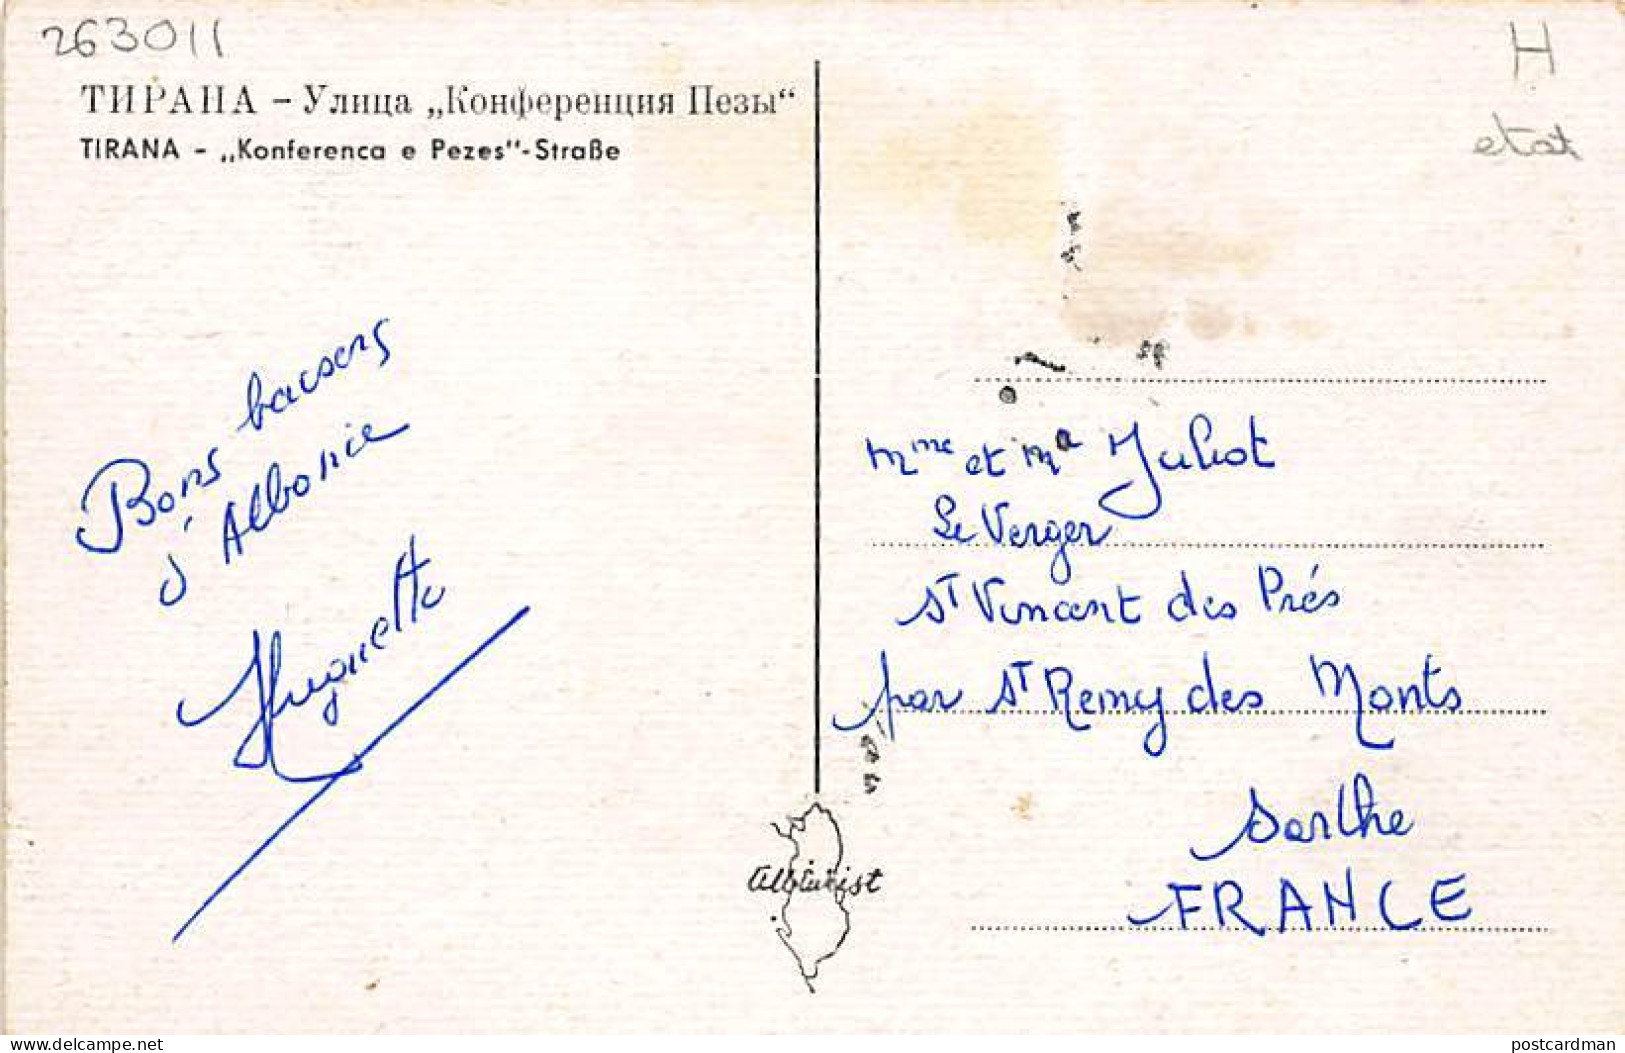 263011
H
etat
ТИРАНА – Улица „Конференция Пезы“
TIRANA – „Konferenca e Pezes“-Straße
Bons baisers
d'Albanie
Huguette
Mme et Mr Juliot
Le Verger
ST Vincent des Prés
par ST Remy des Monts
Sarthe
FRANCE
Albturist
www.delcampe.net
postcardman